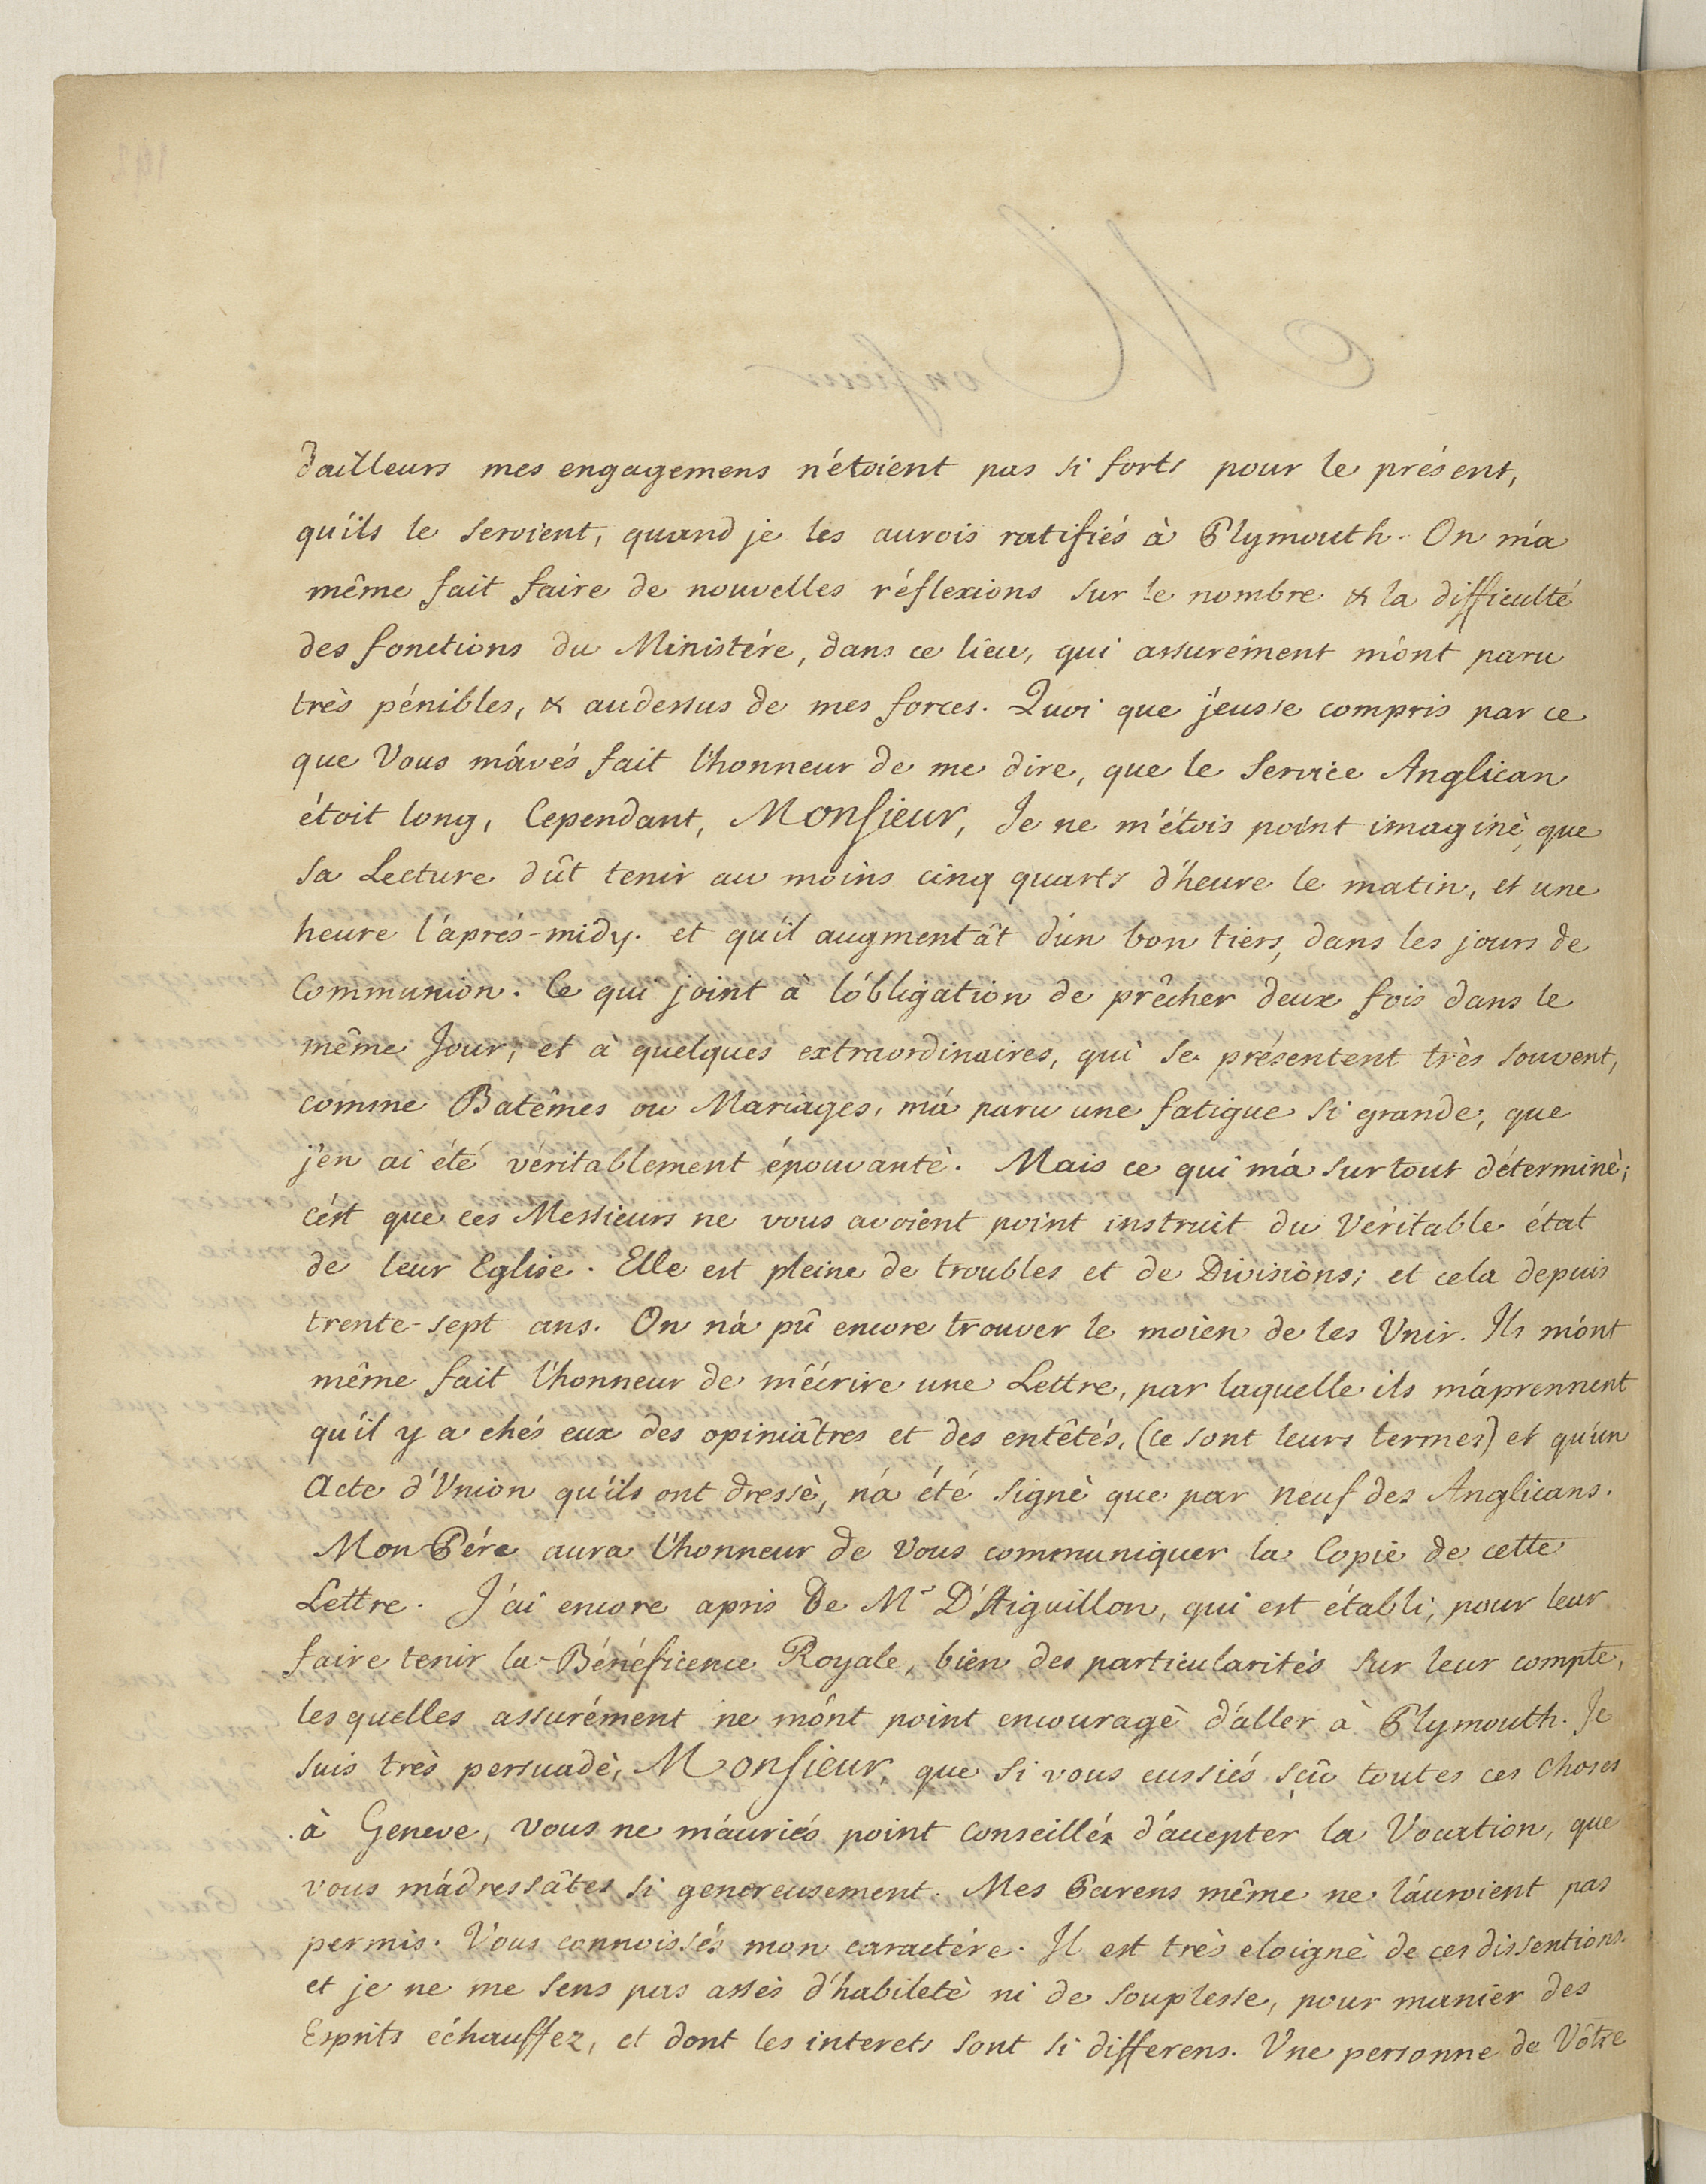 dailleurs mes engagemens n'étoient pas si forts pour le présent,
qu'ils le seroient, quand je les aurois ratifiés à Plymouth. On m'a
même fait faire de nouvelles réflexions sur le nombre & la difficulté
des fonctions du Ministére, dans ce lieu, qui assurément m'ont paru
très pénibles, & audessus de mes forces. Quoi que j'eusse compris par ce
que Vous m'avés fait l'honneur de me dire, que le Service Anglican
étoit long, Cependant, Monsieur, Je ne m'étois point imaginè, que
sa Lecture dût tenir au moins cinq quarts d'heure le matin, et une
heure l'aprés-midy. et qu'il augmentât d'un bon tiers, dans les jours de
Communion. Ce qui joint à l'obligation de prêcher deux fois dans le
même Jour, et à quelques extraordinaires, qui se présentent très souvent,
comme Batêmes ou Mariages, m'a paru une fatigue si grande, que
j'en ai été véritablement épouvantè. Mais ce qui m'a surtout déterminè;
c'est que ces Messieurs ne vous avoient point instruit du véritable état
de leur Eglise. Elle est pleine de troubles et de Divisions; et cela depuis
trente-sept ans. On n'a pû encore trouver le moien de les Unir. Ils m'ont
même fait l'honneur de m'écrire une Lettre, par laquelle ils m'aprennent
qu'il y a chés eux des opiniâtres et des entêtés, (ce sont leurs termes) et qu'un
Acte d'Union qu'ils ont dressè, n'a été signè que par neuf des Anglicans.
Mon Pére aura l'honneur de Vous communiquer la Copie de cette
Lettre. J'ai encore apris De Mr D'Aiguillon, qui est établi, pour leur
faire tenir la Bénéficence Royale, bien des particularités sur leur compte,
lesquelles assurément ne m'ont point encouragè d'aller à Plymouth. Je
suis très persuadè, Monsieur, que si vous eussiés sçû toutes ces choses
à Geneve, vous ne m'auriés point conseillér d'accepter la Vocation, que
vous m'adressâtes si genereusement. Mes Parens même ne l'auroient pas
permis. Vous connoissés mon caractére. Il est très eloignè de ces dissentions.
et je ne me sens pas assès d'habiletè ni de souplesse, pour manier des
Esprits échauffez, et dont les interets sont si differens. Une personne de Vôtre